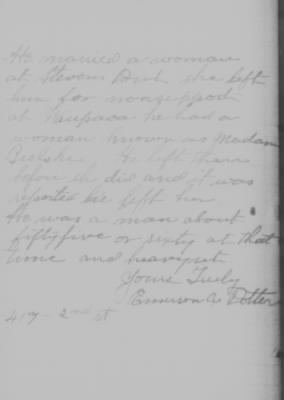 He married a woman
at Stevens Point she left
him for nonsupport
at Waupaca he had a
woman known as Madam
He left there
before she did and it was
reported he left her
He was a man about
fiftyfive or sixty at that
time and heavyset
Yours Truly
Emerson A. Potter
419 - 2nd st